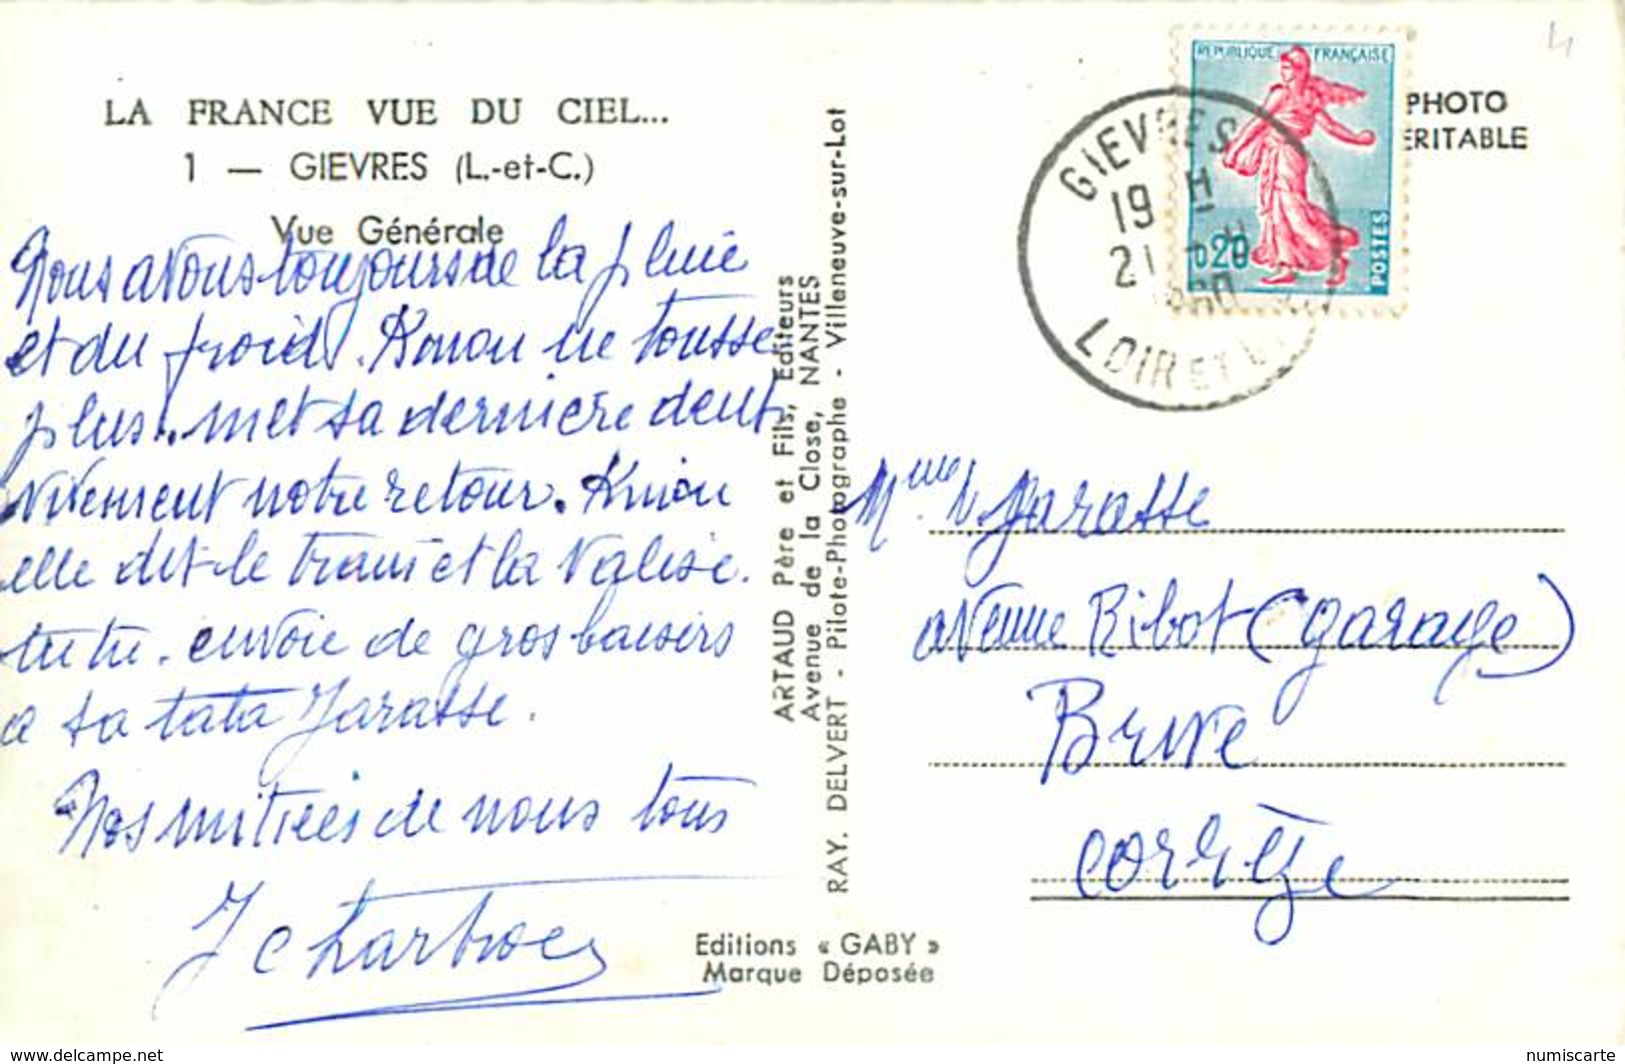 LA FRANCE VUE DU CIEL...
1 — GIEVRES (L.-et-C.)
Vue Générale
Nous avons toujours de la pluie
et du froid. Kinou ne tousse
plus. met sa dernière dent
vivement notre retour. Kinou
elle dit le train et la valise.
tutu. envoie de gros baisers
a sa tata Jarasse.
Nos amitiés de nous tous
J
ARTAUD Père et Fils, Editeurs
Avenue de la Close, NANTES
RAY. DELVERT - Pilote-Photographe - Villeneuve-sur-Lot
Editions « GABY »
Marque Déposée
REPUBLIQUE FRANÇAISE
0,20
POSTES
GIEVRES
19 H
21
LOIR ET
PHOTO
ERITABLE
4
Mme V. Jarasse
avenue Ribot (garage)
Brive
Corrèze
delcampe.net
numiscarte